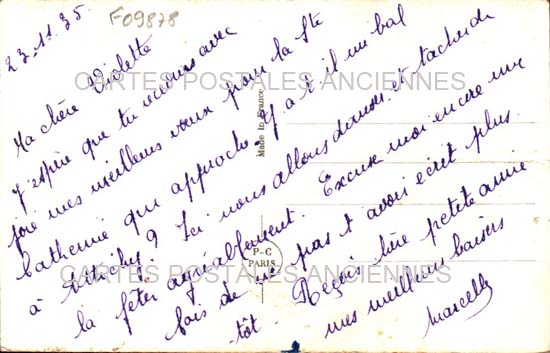 23-11.35.
F09878
Ma chère Violette
J'espère que tu recevras avec
joie mes meilleurs vœux pour la Ste
Catherine qui approche. Y a t il un bal
à ? Ici nous allons danser et tacher de
la fêter agréablement. Excuse moi encore une
fois de ne pas t avoir écrit plus
tôt. Reçois chère petite amie
mes meilleurs baisers
Marcelle
CARTES POSTALES ANCIENNES
CARTES POSTALES ANCIENNES
Made in France
P-C
PARIS